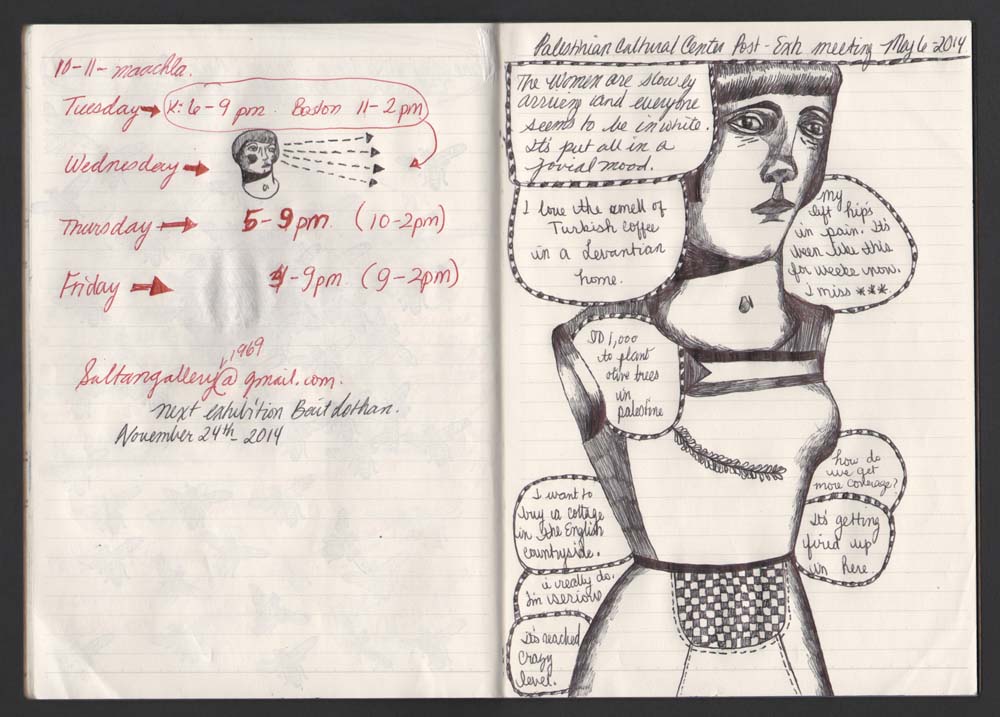 10-11- maachla.
Tuesday → K: 6-9 pm. Boston 11-2 pm
Wednesday →
Thursday → 5-9pm. (10-2pm)
Friday → 4-9pm. (9-2pm)
1969
Sultangallery@gmail.com.
next exhibition Bait dothan.
November 24th- 2014
Palestinian Cultural Center Post-Exh meeting May 6-2014
The women are slowly
arriving and everyone
seems to be in white.
It's put all in a
jovial mood.
I love the smell of
Turkish coffee
in a Levantian
home.
my
left hips
in pain. It's
been like this
for weeks now.
I miss ***
ID 1,000
to plant
olive trees
in
palestine
how do
we get
more coverage?
It's getting
fired up
in here.
I want to
buy a cottage
in the English
countryside.
i really do.
I'm serious
It's reached
crazy
level.